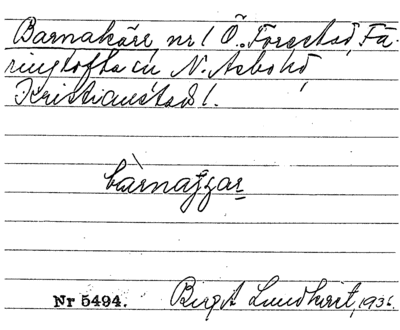 Barnakärr, nr 1 Ö. Forestad, Fä-
ringtofta sn N. Åsbo hd,
Kristianstads l.
bàrnaʒʒar
Nr 5494. Birgit Lundkvist, 1936.